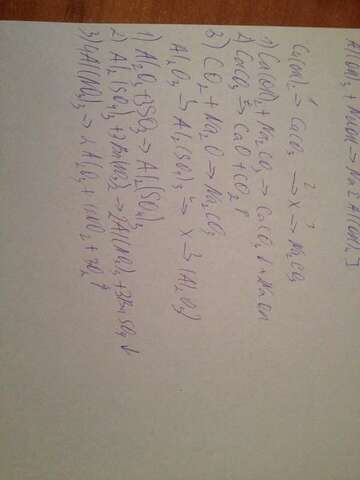 Al(OH)3 + NaOH → Na[Al(OH)4]
Ca(OH)2 →1 CaCO3 →2 x →3 Na2CO3
1) Ca(OH)2 + Na2CO3 → CaCO3 ↓ + NaOH
2) CaCO3 → CaO + CO2 ↑
3) CO2 + Na2O → Na2CO3
Al2O3 → Al2(SO4)3 → x → (Al2O3)
1) Al2O3 + 3SO3 → Al2(SO4)3
2) Al2(SO4)3 + 3Ba(NO3)2 → 2Al(NO3)3 + 3BaSO4 ↓
3) 4Al(NO3)3 → 2Al2O3 + 12NO2 + 3O2 ↑